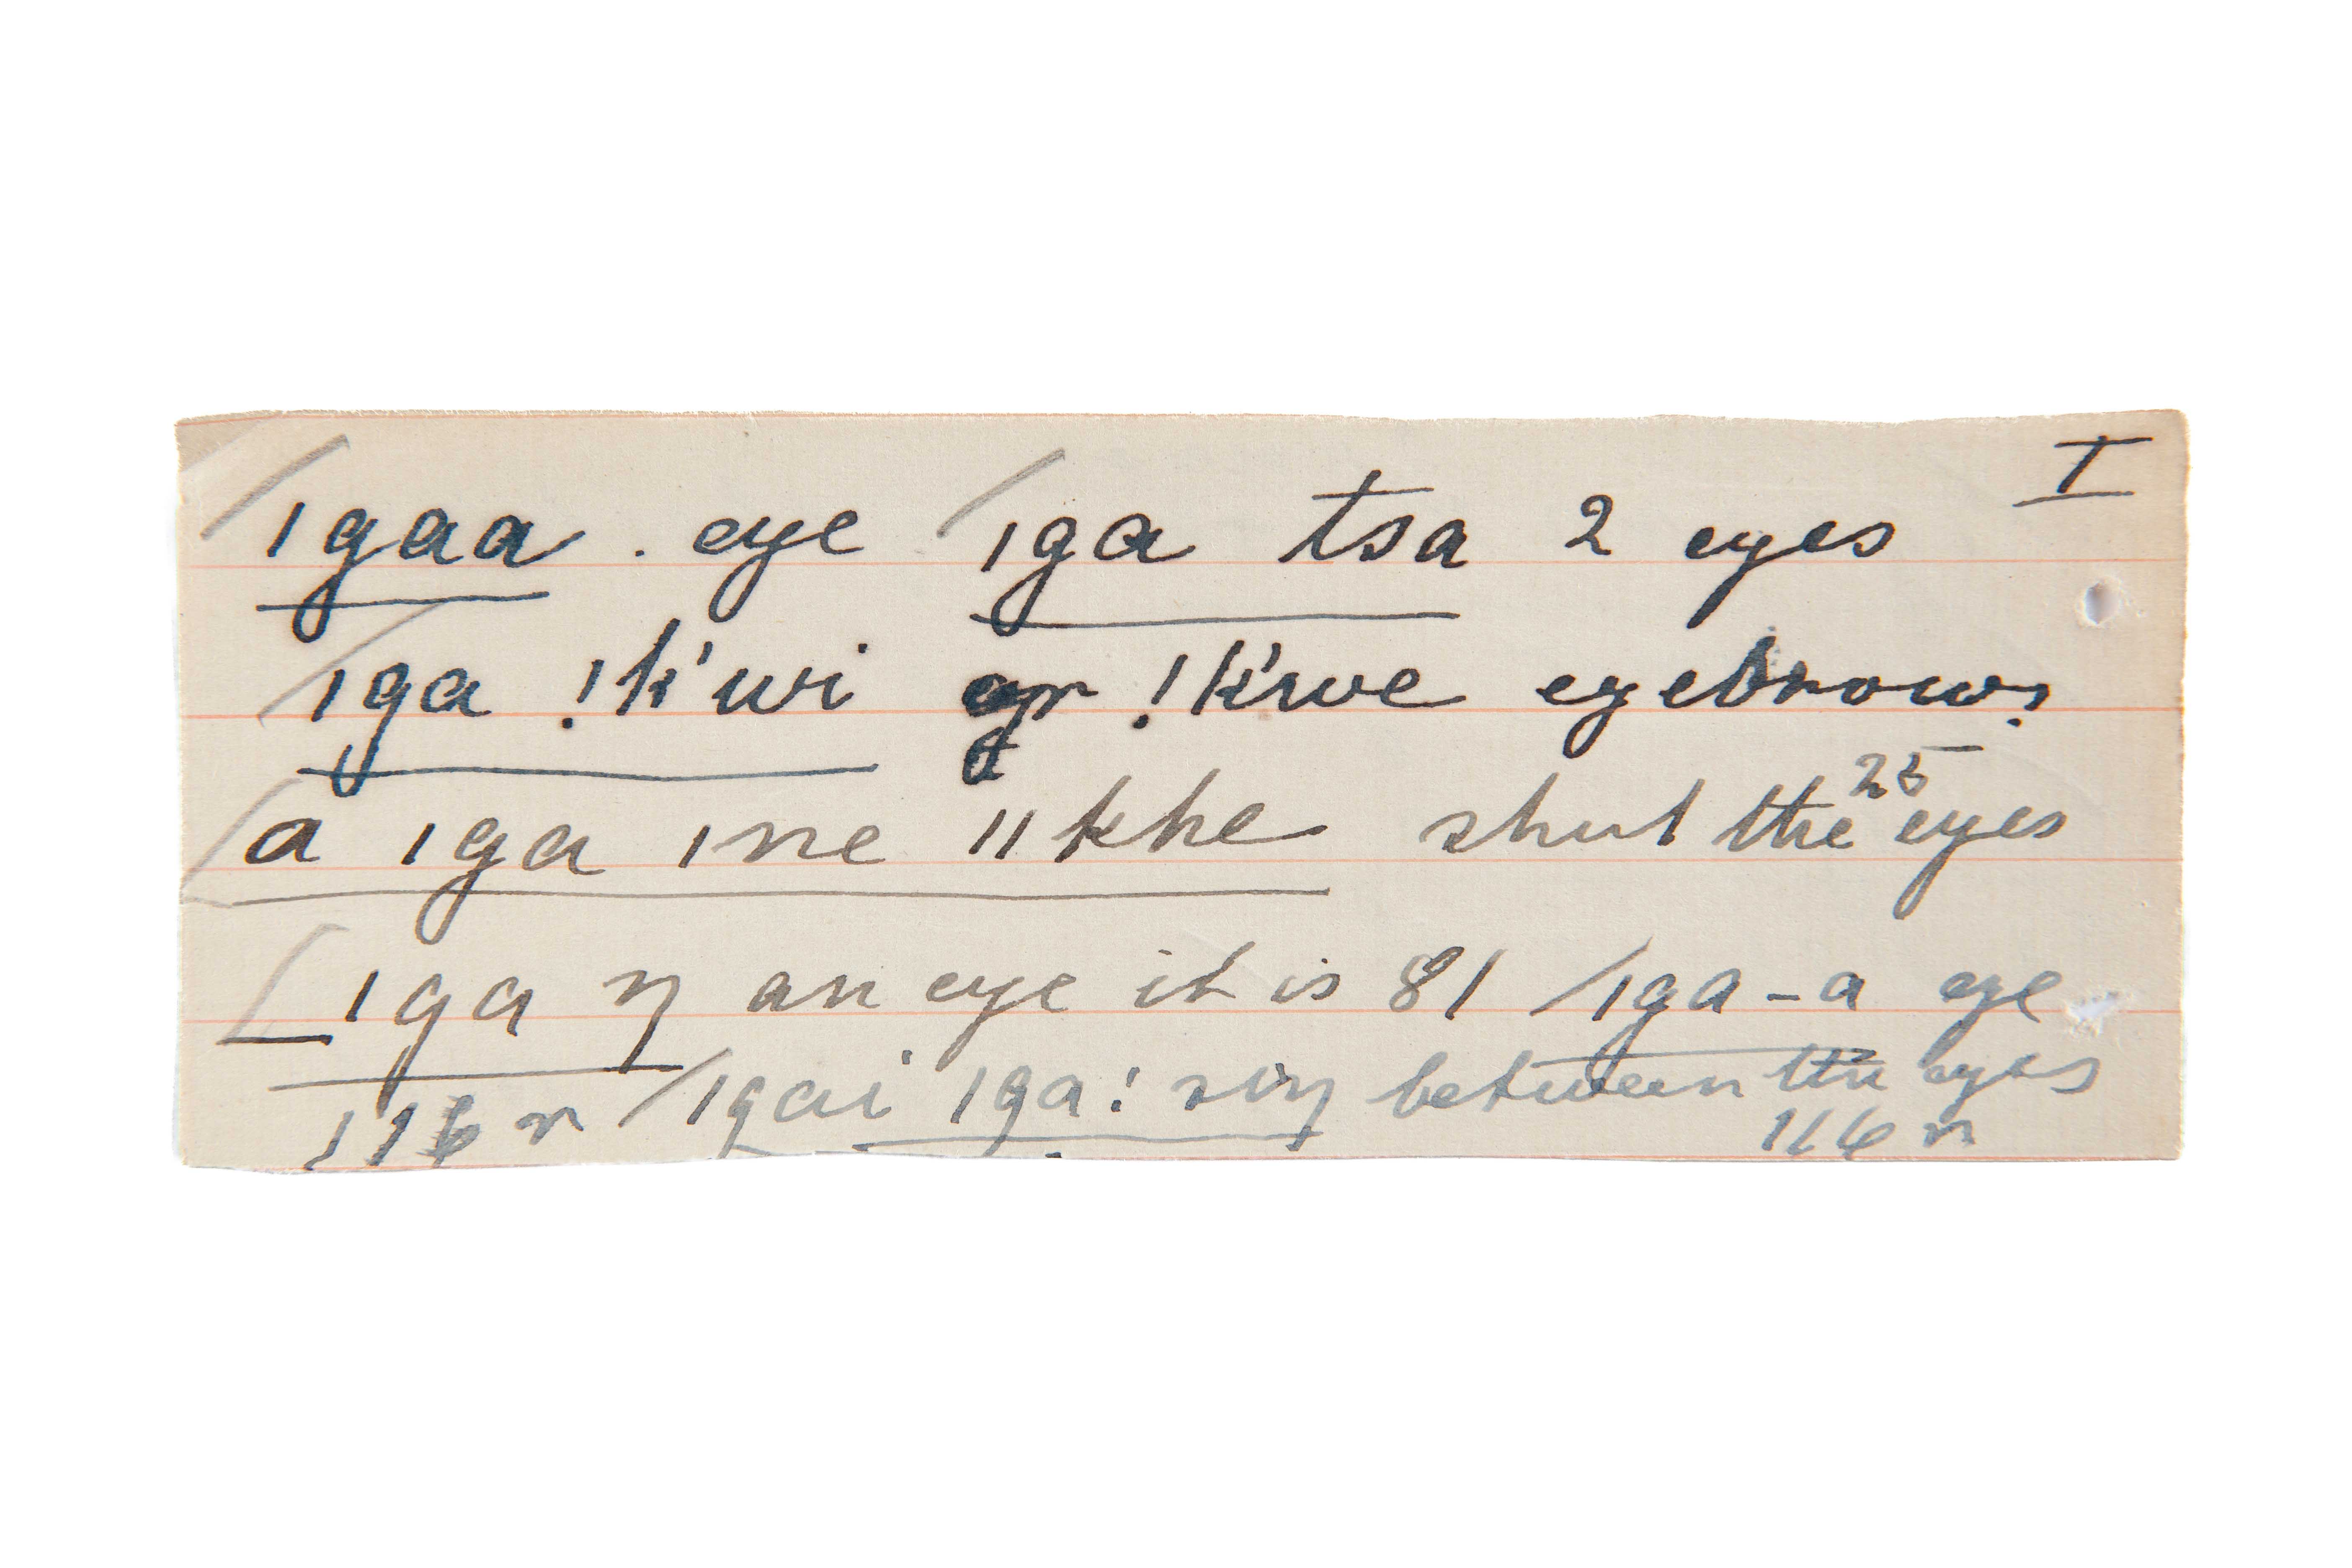 I
ǀgaa . eye ǀga tsa 2 eyes
ǀga !k'wi or !k'we eyebrows
a ǀga ǀne ǁkhe shut the eyes 25
ǀga ŋ an eye it is 81 ǀga-a eye
116 r ǀgai ǀga: siŋ between the eyes
116 r